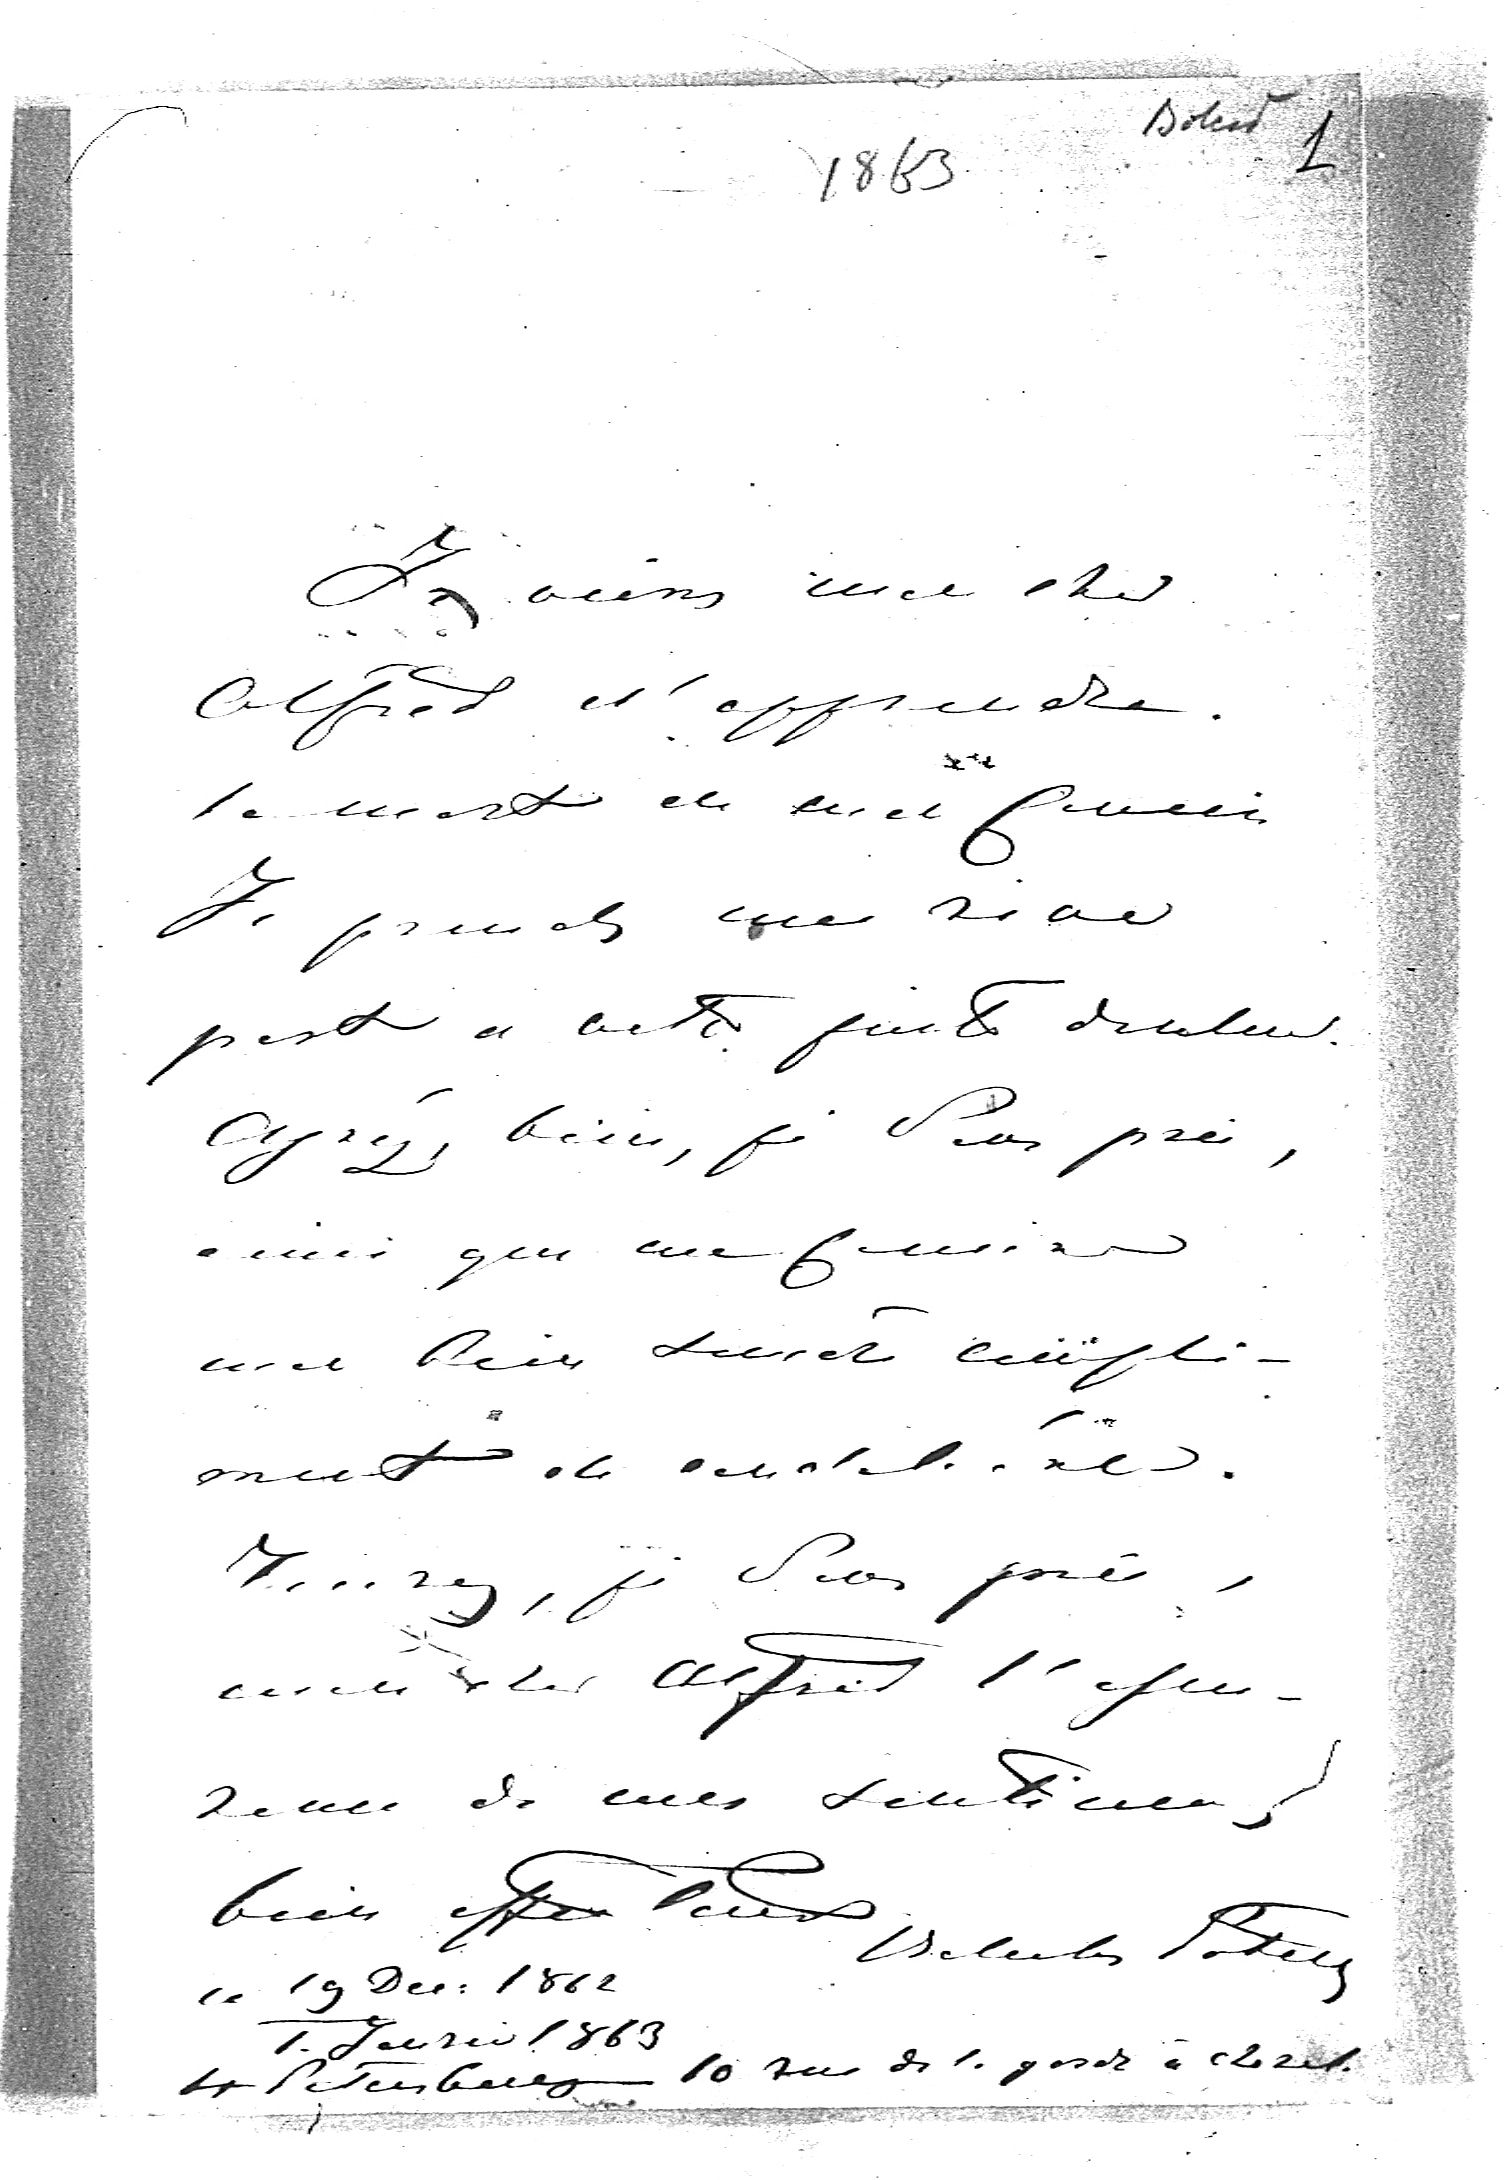 1863
1
Je viens mon cher
Alfred d'apprendre
la mort de mon Cousin
Je prends une vive
part a cette juste douleur.
Agréez bien, je Vous prie,
ainsi que ma Cousine
mon bien sincère compli-
ment de condoléance.
Veuillez, je Vous prie,
mon cher Alfred l'assu-
rance de mes sentimens
bien affectueux
le 19 Dec: 1862
1. Janvier 1863
St Petersbourg 10 rue de la garde à cheval.